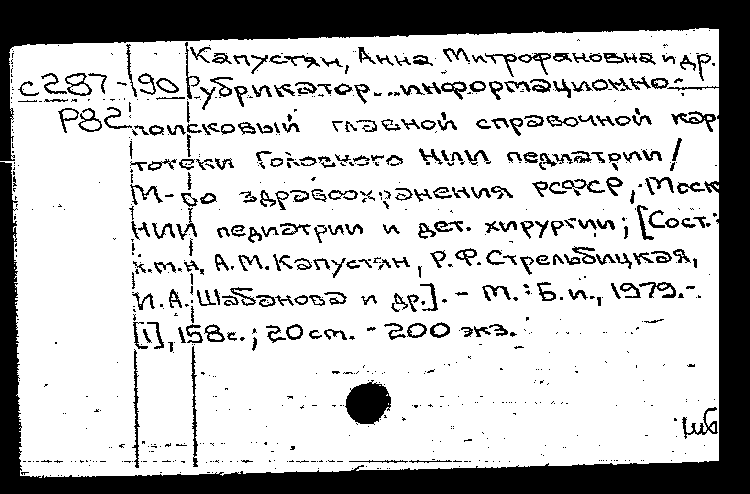 Капустян, Анна Митрофановна и др.
с287-90 Рубрикатор информационно-
Р82 поисковый главной справочной кар-
тотеки Головного НИИ педиатрии /
М-во здравоохранения РСФСР, Моск
НИИ педиатрии и дет. хирургии; [Сост.:
к.м.н. А.М.Капустян, Р.Ф.Стрельбицкая,
И.А.Шабанова и др.]. - М.: Б.и., 1979.-
[1], 158с.; 20cm. - 200 экз.